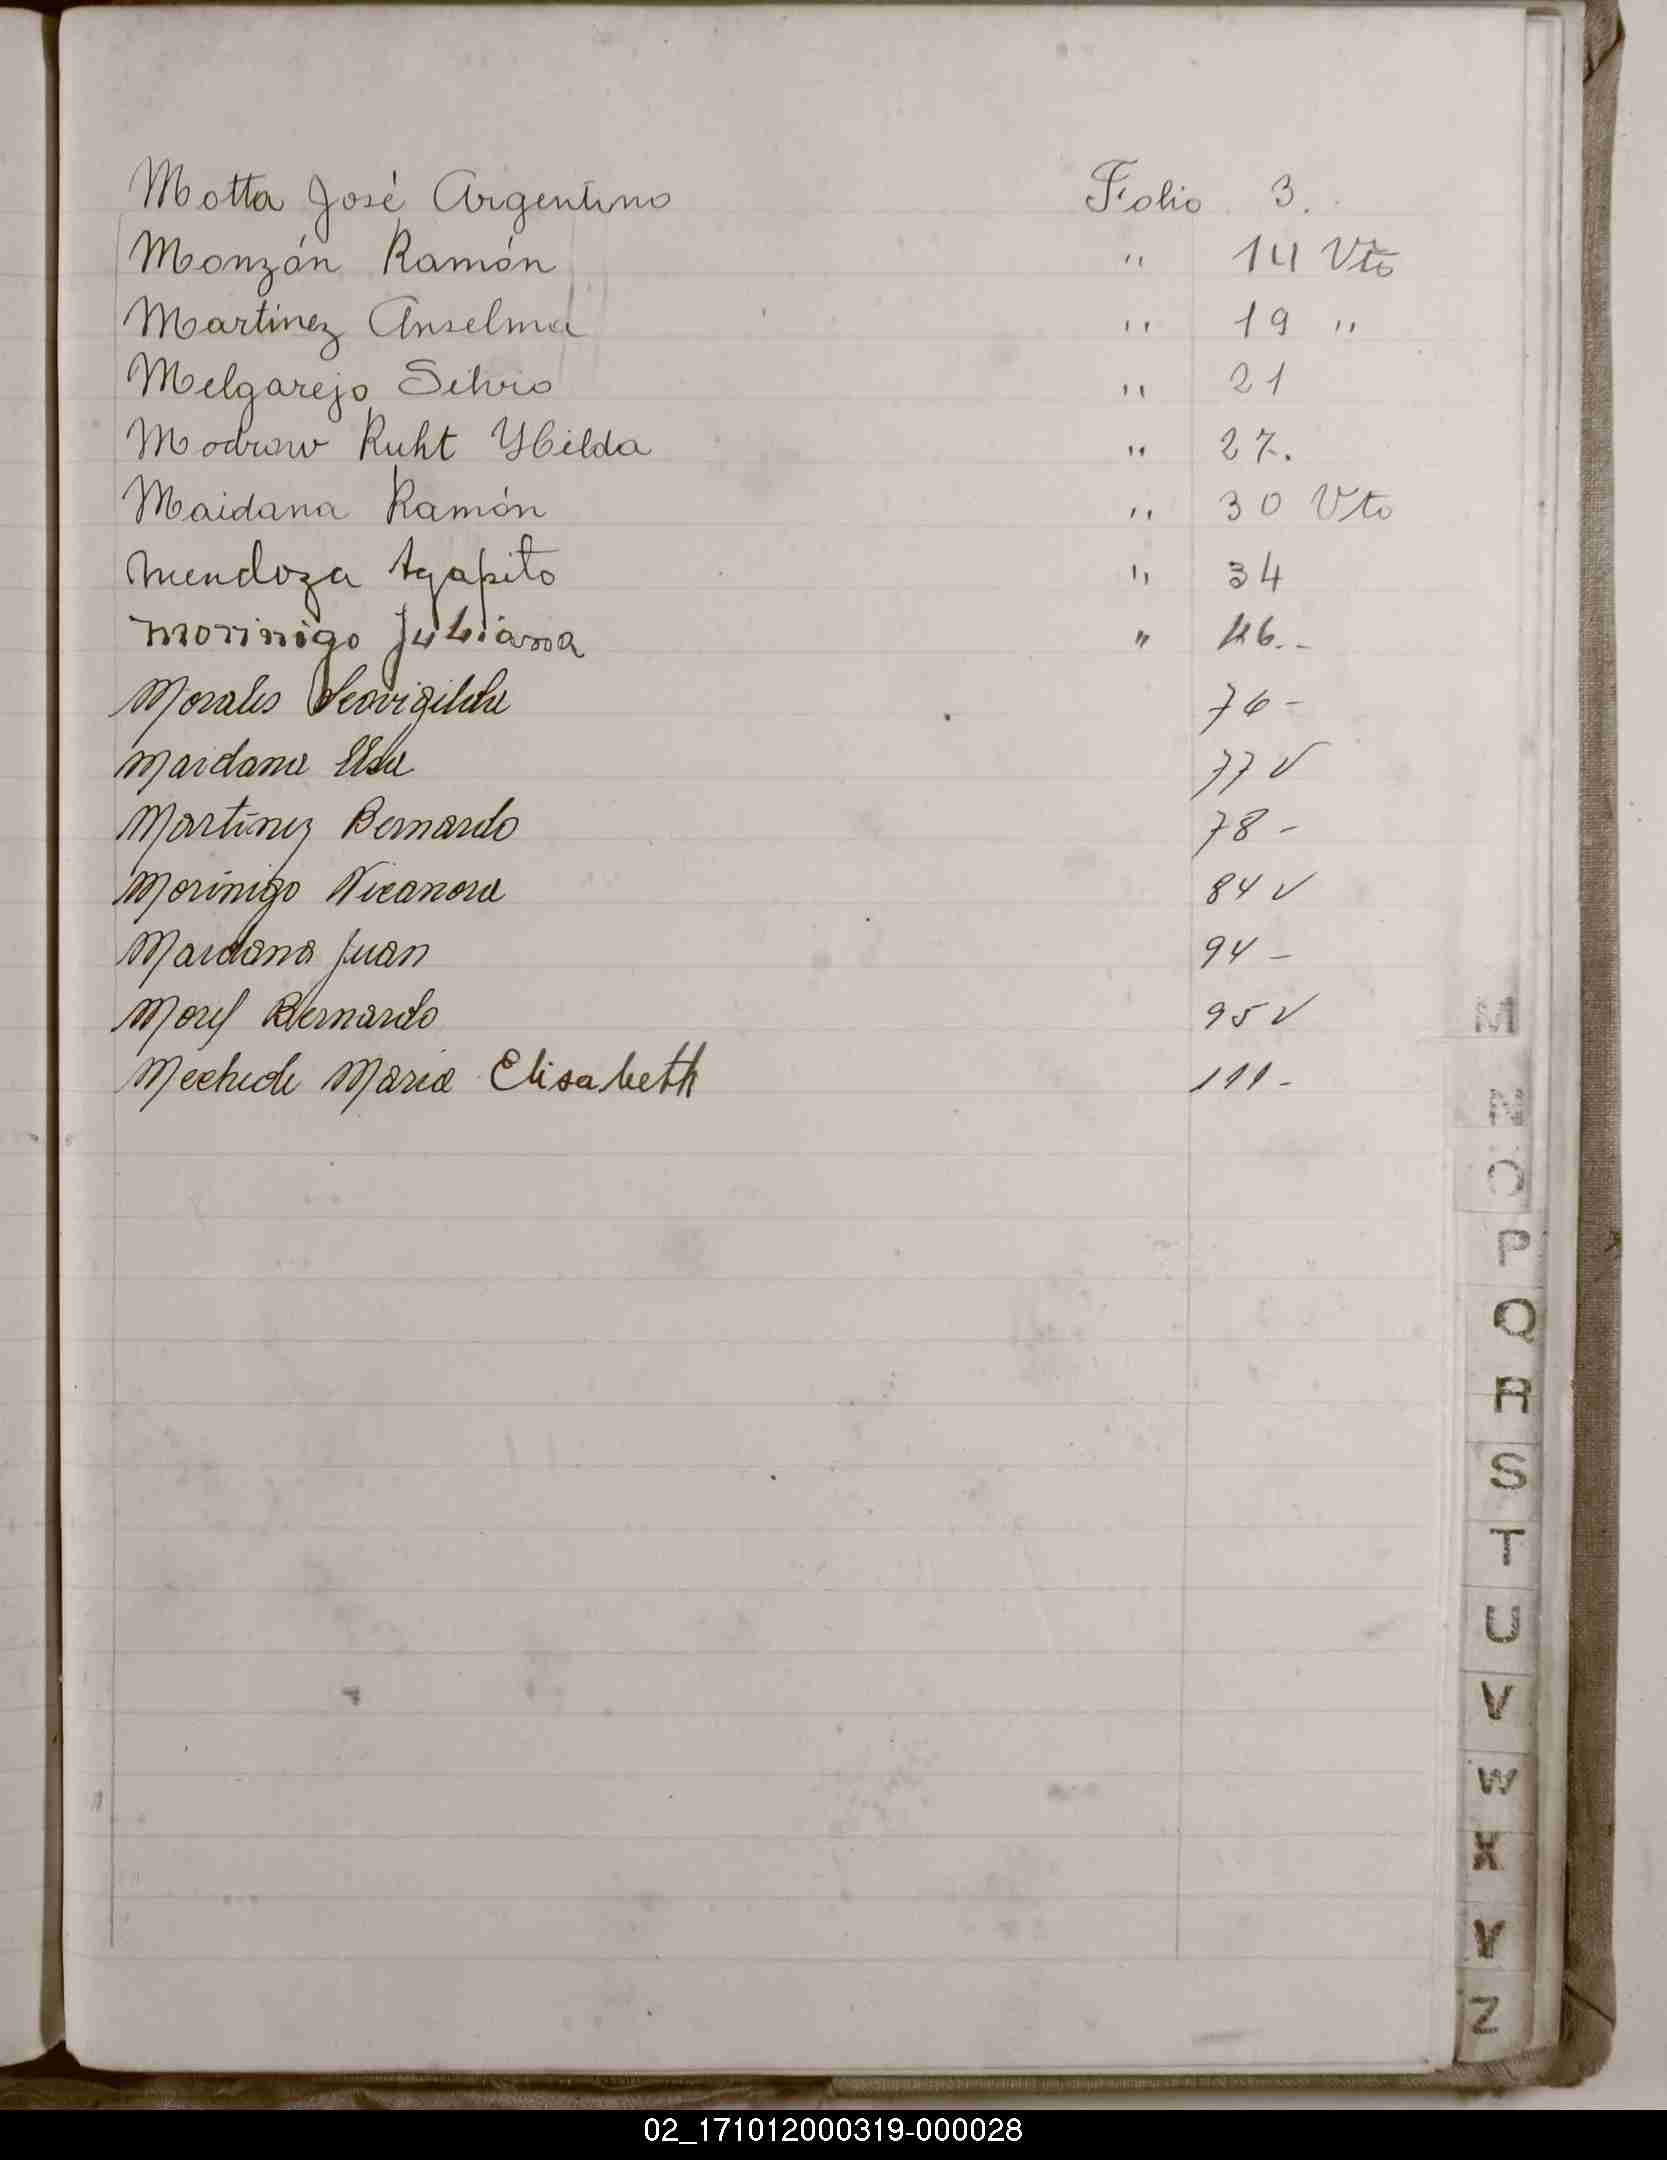 Motta José Argentino Folio 3.
Monzón Ramón " 14 Vto
Martinez Anselma " 19 "
Melgarejo Silvio " 21
Modrow Ruht Hilda " 27.
Maidana Ramón " 30 Vto
Mendoza Agapito " 34
Morinigo Juliana "
Morales Leovigilda 76-
Maidana Elsa 77 V
Martinez Bernardo 78-
Morinigo Nicanora 84 V
Maidana Juan 94-
Bernardo 95 V
Maria Elisabeth 111-
M
N
O
P
Q
R
S
T
U
V
W
X
Y
Z
02_171012000319-000028